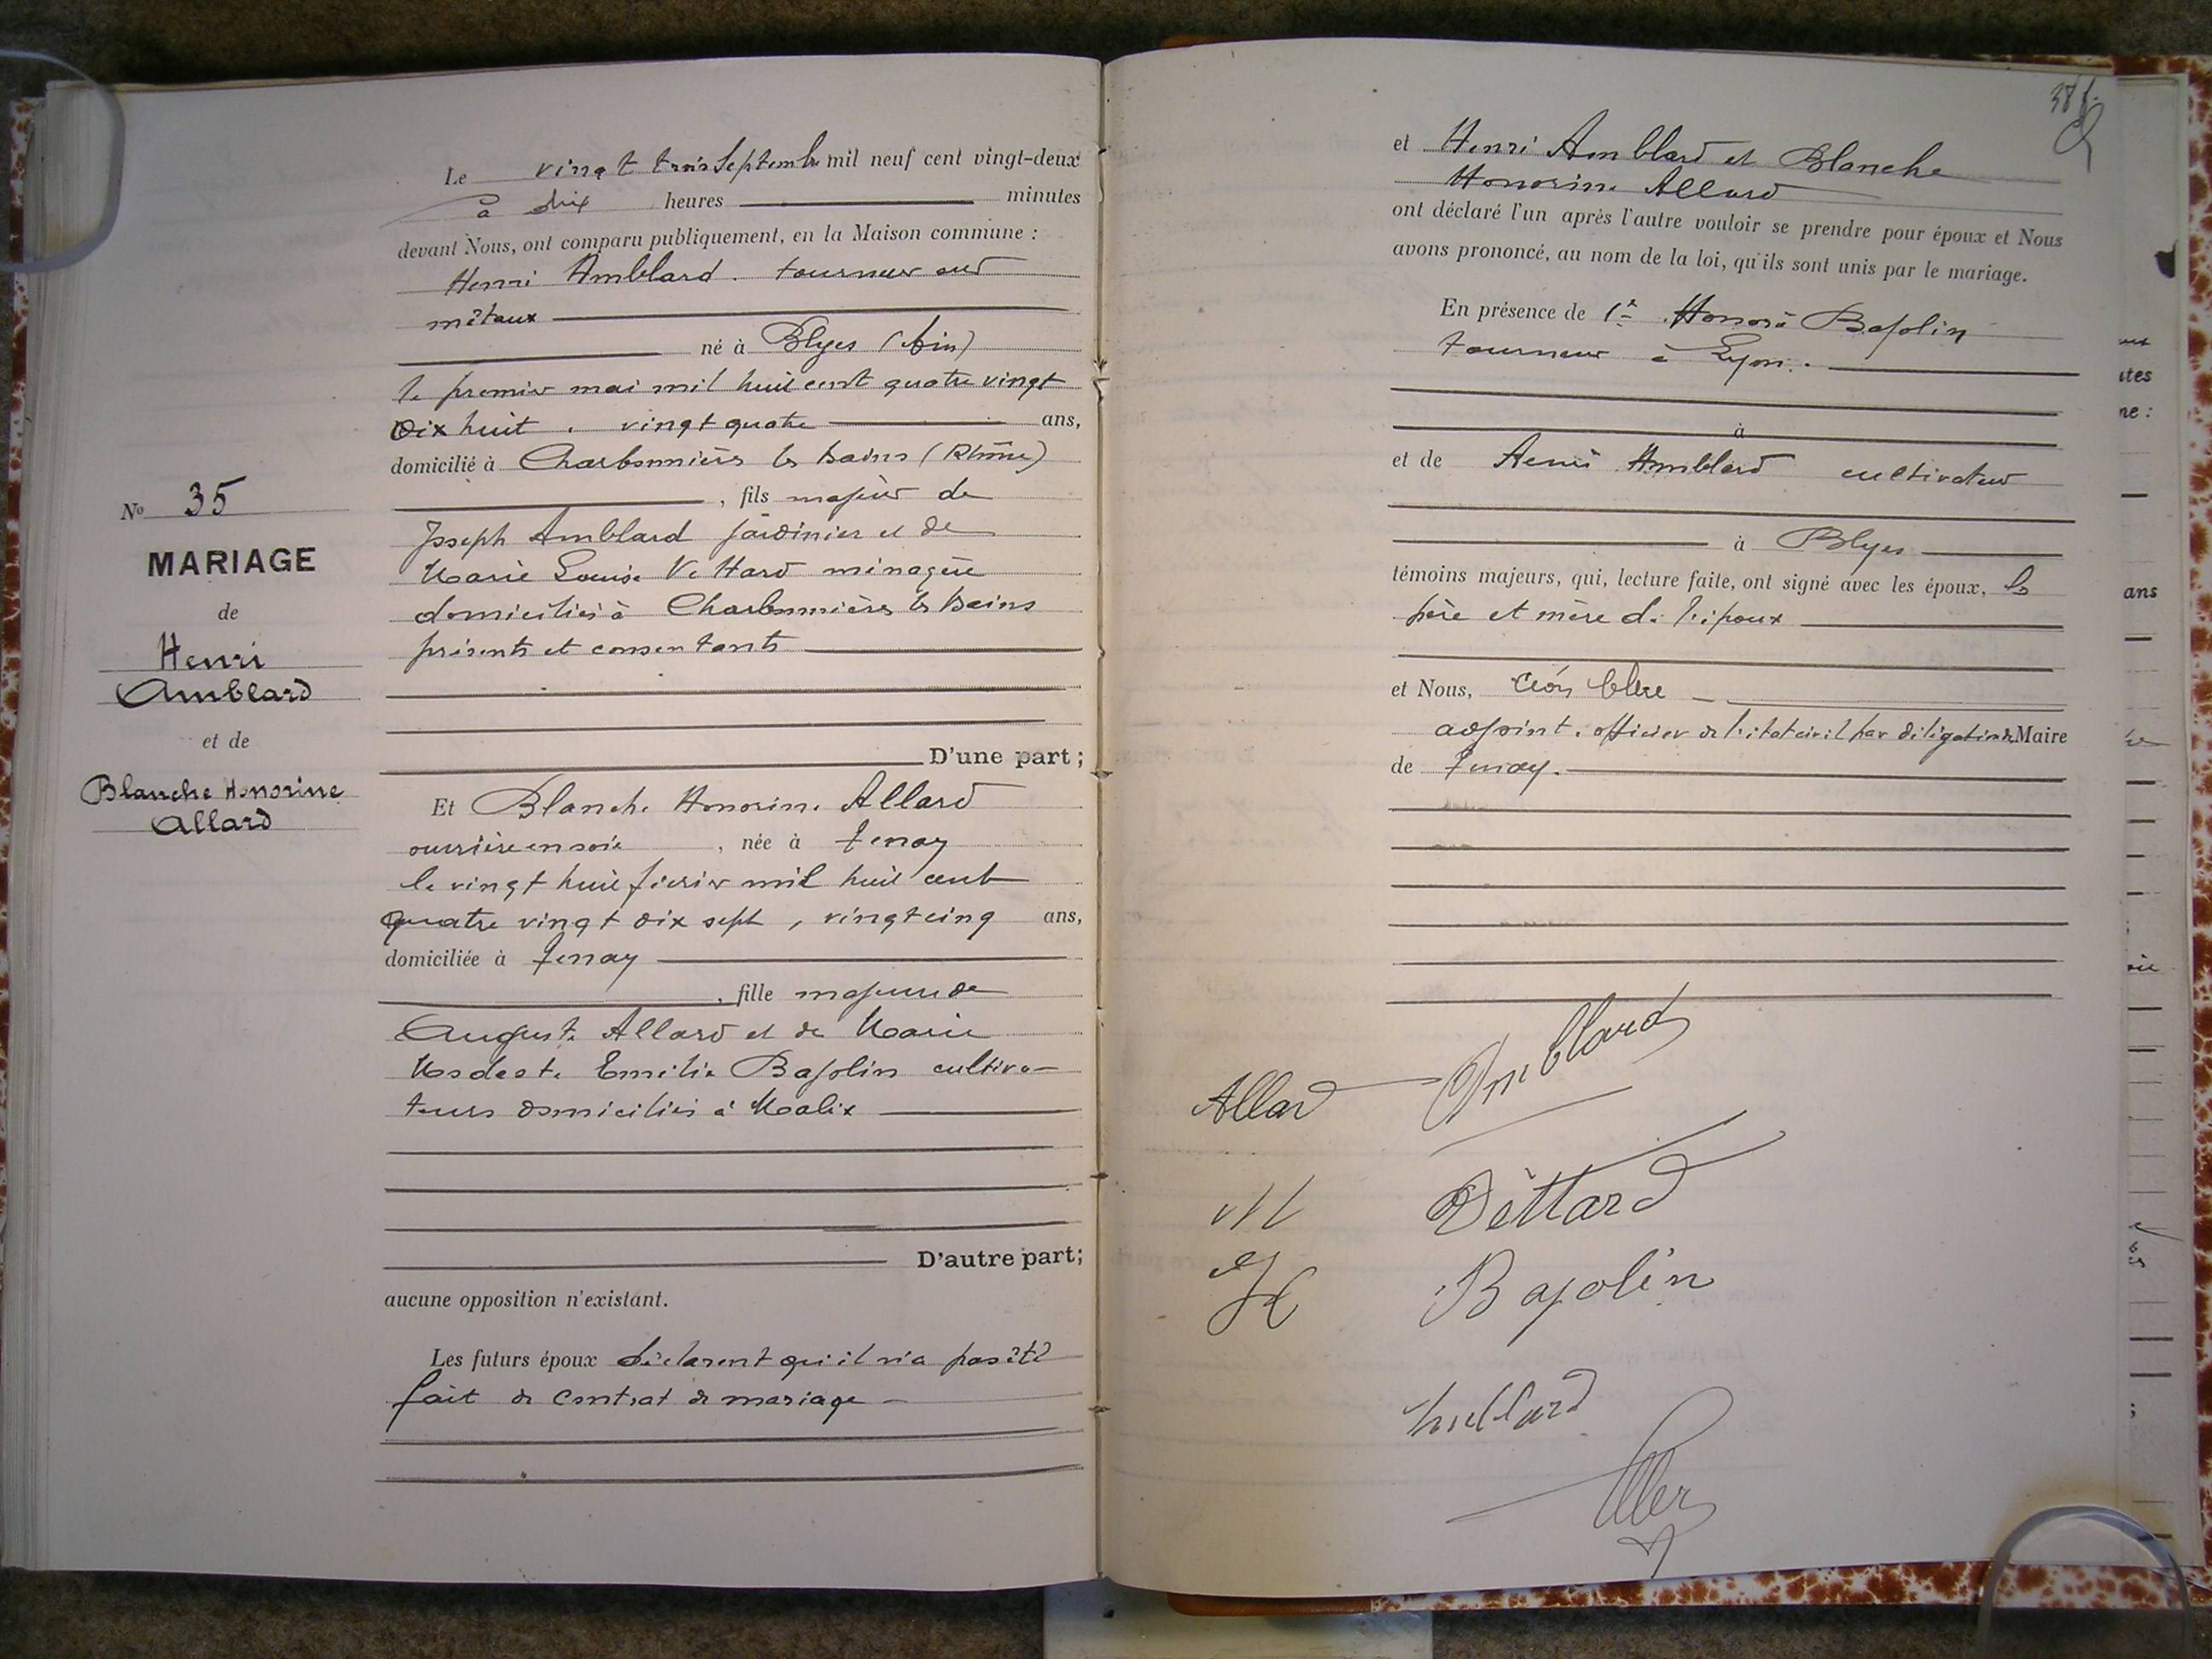 Le vingt trois Septembre mil neuf cent vingt-deux
à dix heures minutes
devant Nous, ont comparu publiquement, en la Maison commune :
Henri Amblard. tourneur sur
métaux
né à Blyes (Ain)
le premier mai mil huit cent quatre vingt
Dix huit, vingt quatre ans,
domicilié à Charbonnières les bains (Rhône)
, fils majeur de
Joseph Amblard jardinier et de
Marie Louise Vettard ménagère
domiciliés à Charbonnières les bains
présents et consentants
D'une part ;
Et Blanche Honorine Allard
ouvrière en soie , née à Tenay
le vingt huit février mil huit cent
quatre vingt dix sept, vingt cinq ans,
domiciliée à Tenay
, fille majeure de
Auguste Allard et de Marie
Modeste Emilie Bajolin cultiva-
teurs domiciliés à Malix
D'autre part;
aucune opposition n'existant.
Les futurs époux déclarent qu'il n'a pas été
fait de contrat de mariage -
No 35
MARIAGE
de
Henri
Amblard
et de
Blanche Honorine
Allard
et Henri Amblard et Blanche
Honorine Allard
ont déclaré l'un après l'autre vouloir se prendre pour époux et Nous
avons prononcé, au nom de la loi, qu'ils sont unis par le mariage.
En présence de 1° Honoré Bajolin
tourneur à Lyon.
à
et de Amblard cultivateur
à Blyes
témoins majeurs, qui, lecture faite, ont signé avec les époux, les
père et mère de l'époux
et Nous, Léon
adjoint, officier de l'état civil par délégation du Maire
de Tenay.
Allard Amblard
Vettard
Bajolin